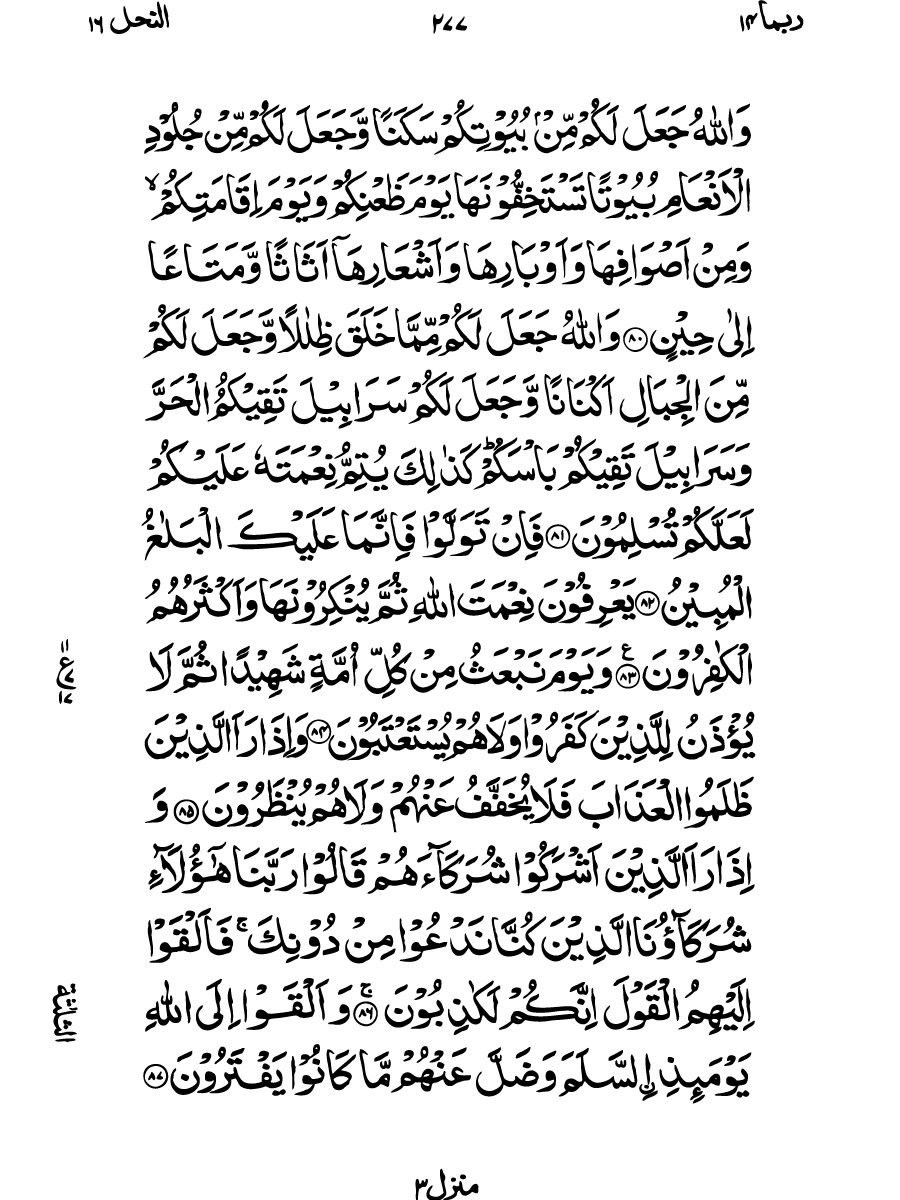 ربما ۱۴
۲۷۷
النحل ۱۶
وَاللّٰهُ جَعَلَ لَكُمْ مِّنْۢ بُيُوْتِكُمْ سَكَنًا وَّجَعَلَ لَكُمْ مِّنْ جُلُوْدِ
الْاَنْعَامِ بُيُوْتًا تَسْتَخِفُّوْنَهَا يَوْمَ ظَعْنِكُمْ وَيَوْمَ اِقَامَتِكُمْ ۙ
وَمِنْ اَصْوَافِهَا وَاَوْبَارِهَا وَاَشْعَارِهَاۤ اَثَاثًا وَّمَتَاعًا
اِلٰى حِيْنٍ ﴿۸۰﴾ وَاللّٰهُ جَعَلَ لَكُمْ مِّمَّا خَلَقَ ظِلٰلًا وَّجَعَلَ لَكُمْ
مِّنَ الْجِبَالِ اَكْنَانًا وَّجَعَلَ لَكُمْ سَرَابِيْلَ تَقِيْكُمُ الْحَرَّ
وَسَرَابِيْلَ تَقِيْكُمْ بَاْسَكُمْ ؕ كَذٰلِكَ يُتِمُّ نِعْمَتَهٗ عَلَيْكُمْ
لَعَلَّكُمْ تُسْلِمُوْنَ ﴿۸۱﴾ فَاِنْ تَوَلَّوْا فَاِنَّمَا عَلَيْكَ الْبَلٰغُ
الْمُبِيْنُ ﴿۸۲﴾ يَعْرِفُوْنَ نِعْمَتَ اللّٰهِ ثُمَّ يُنْكِرُوْنَهَا وَاَكْثَرُهُمُ
الْكٰفِرُوْنَ ﴿۸۳﴾ ع وَيَوْمَ نَبْعَثُ مِنْ كُلِّ اُمَّةٍ شَهِيْدًا ثُمَّ لَا
۱۱ ع ۷ ۱۷
يُؤْذَنُ لِلَّذِيْنَ كَفَرُوْا وَلَا هُمْ يُسْتَعْتَبُوْنَ ﴿۸۴﴾ وَاِذَا رَاَ الَّذِيْنَ
ظَلَمُوا الْعَذَابَ فَلَا يُخَفَّفُ عَنْهُمْ وَلَا هُمْ يُنْظَرُوْنَ ﴿۸۵﴾ وَ
اِذَا رَاَ الَّذِيْنَ اَشْرَكُوْا شُرَكَآءَهُمْ قَالُوْا رَبَّنَا هٰۤؤُلَآءِ
شُرَكَآؤُنَا الَّذِيْنَ كُنَّا نَدْعُوْا مِنْ دُوْنِكَ ۚ فَاَلْقَوْا
اِلَيْهِمُ الْقَوْلَ اِنَّكُمْ لَكٰذِبُوْنَ ﴿۸۶﴾ ۚ وَاَلْقَوْا اِلَى اللّٰهِ
الثلثة
يَوْمَىِٕذِ اِۨلسَّلَمَ وَضَلَّ عَنْهُمْ مَّا كَانُوْا يَفْتَرُوْنَ ﴿۸۷﴾
منزل ۳